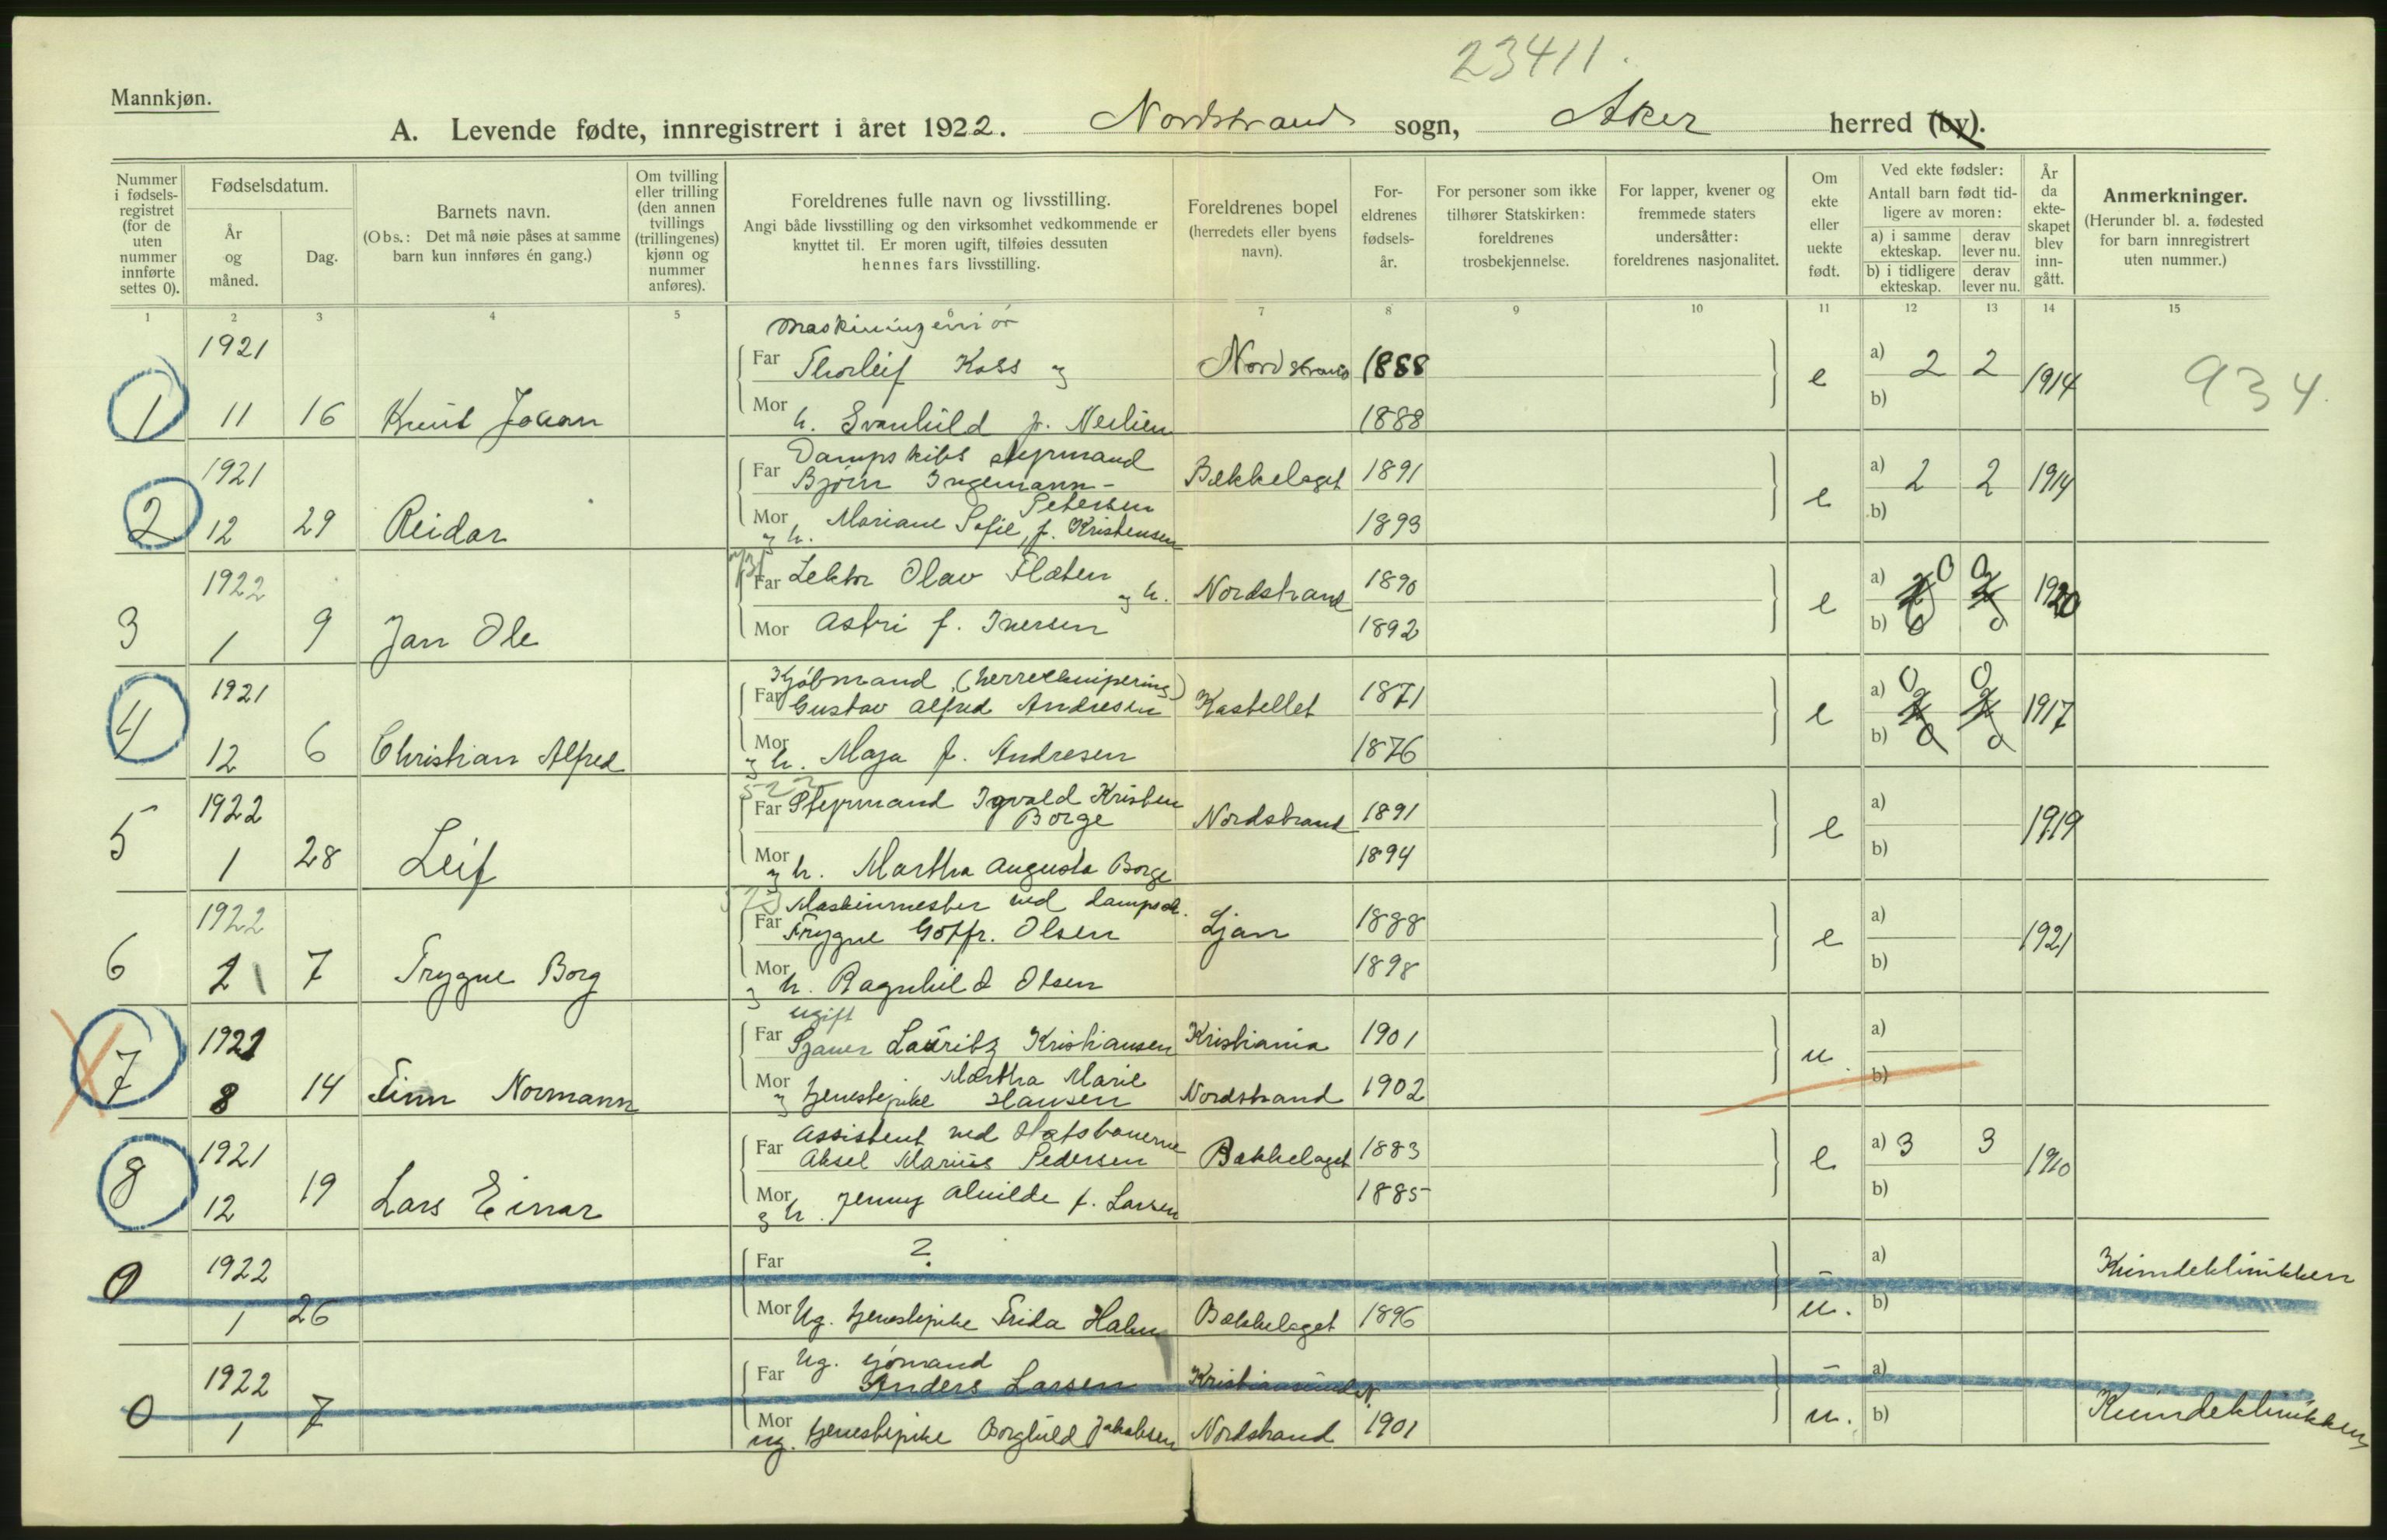 23411.
Mannkjøn.
A. Levende fødte, innregistrert i året 1922. Nordstrand sogn, Aker herred (by).
Nummer i fødsels-registret (for de uten nummer innførte settes 0).
Fødselsdatum.
År og måned.
Dag.
Barnets navn.
(Obs.: Det må nøie påses at samme barn kun innføres én gang.)
Om tvilling eller trilling (den annen tvillings (trillingenes) kjønn og nummer anføres).
Foreldrenes fulle navn og livsstilling.
Angi både livsstilling og den virksomhet vedkommende er knyttet til. Er moren ugift, tilføies dessuten hennes fars livsstilling.
Foreldrenes bopel (herredets eller byens navn).
For-eldrenes fødsels-år.
For personer som ikke tilhører Statskirken: foreldrenes trosbekjennelse.
For lapper, kvener og fremmede staters undersåtter: foreldrenes nasjonalitet.
Om ekte eller uekte født.
Ved ekte fødsler: Antall barn født tid-ligere av moren:
a) i samme ekteskap. derav lever nu.
b) i tidligere ekteskap. derav lever nu.
År da ekte-skapet blev inn-gått.
Anmerkninger.
(Herunder bl. a. fødested for barn innregistrert uten nummer.)
1 2 3 4 5 6 7 8 9 10 11 12 13 14 15
1921 Maskiningeniør
Far Thorleif Koss og Nordstrand 1888 e a) 2 2 1914 934.
1 11 16 Knut Johan Mor h. Svanhild f. Neilien 1888 b)
1921 Dampskibs styrmand
Far Bjørn Ingemann- Petersen Bækkelaget 1891 e a) 2 2 1914
2 12 29 Reidar Mor og h. Mariane Sofie, f. Kristensen 1893 b)
1922 Far Lektor Olav Flaten og h. Nordstrand 1890 e a) 0 0 1920
3 1 9 Jan Ole Mor Astri f. Iversen 1892 b) 0 0
1921 Kjøbmand (herreekvipering)
Far Gustav Alfred Andresen Kastellet 1871 e a) 0 0 1917
4 12 6 Christian Alfred Mor og h. Maja f. Andresen 1876 b) 0 0
522
1922 Far Styrmand Ingvald Kristen Borge Nordstrand 1891 e a) 1919
5 1 28 Leif Mor og h. Martha Augusta Borge 1894 b)
1922 Maskinmester ved dampsk.
Far Trygve Gotfr. Olsen Ljan 1888 e a) 1921
6 1 7 Trygve Borg Mor og h. Ragnhild Olsen 1898 b)
1921 ugift
Far Lauritz Kristiansen Kristiania 1901 u. a)
7 8 14 Finn Normann Mor og tjenestepike Martha Marie Hansen Nordstrand 1902 b)
1921 Assistent ved Statsbanerne
Far Aksel Marius Pedersen Bækkelaget 1883 e a) 3 3 1910
8 12 19 Lars Einar Mor og h. Jenny Alvilde f. Larsen 1885 b)
0 1922 Far ? a) Kvindeklinikken
1 26 Mor Ug. tjenestepike Frida Halm Bækkelaget 1896 u. b)
1922 Far Ug. sjømand Anders Larsen Kristiansund N. a)
0 1 7 Mor ug. tjenestepike Borghild Jakobsen Nordstrand 1901 u. b) Kvindeklinikken